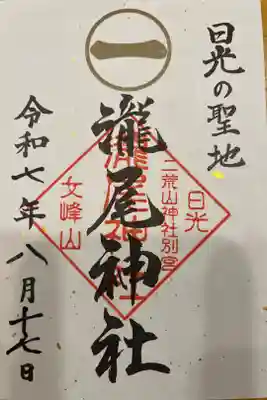 日光の聖地
一
瀧尾神社
日光
二荒山神社別宮
瀧尾神社
女峰山
令和七年八月十七日